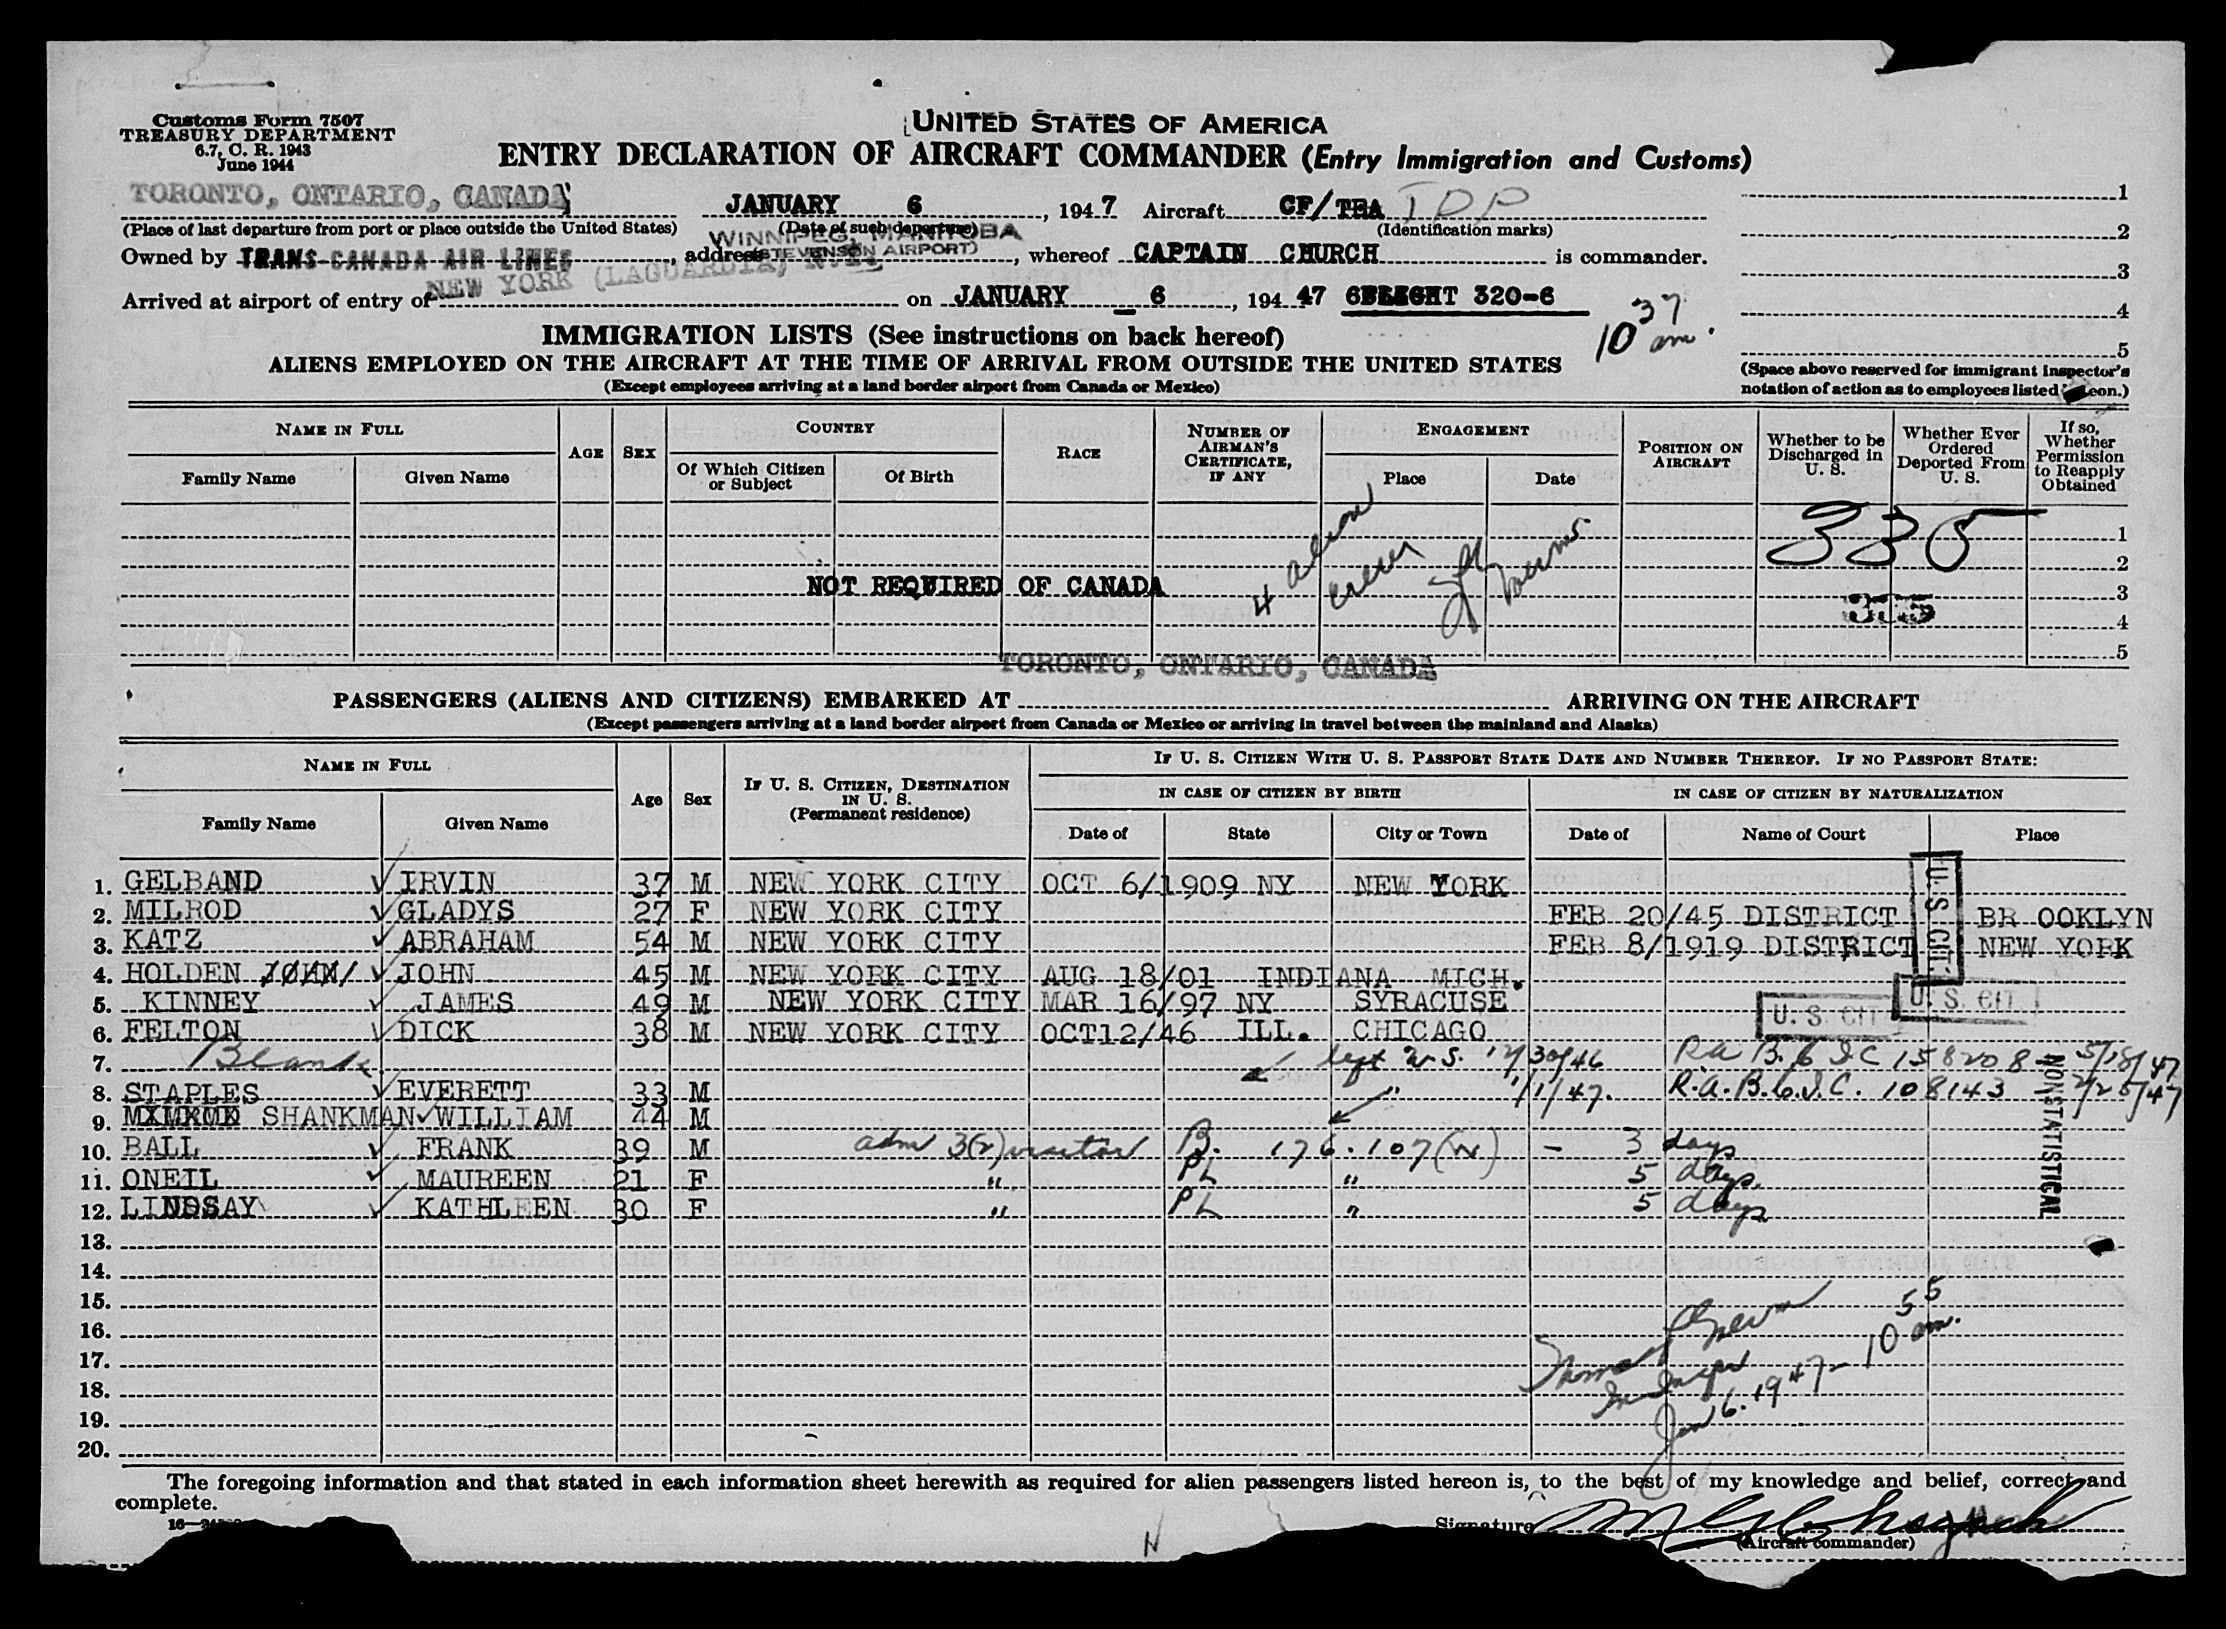 Customs Form 7507
TREASURY DEPARTMENT
6.7, C. R. 1943
June 1944
UNITED STATES OF AMERICA
ENTRY DECLARATION OF AIRCRAFT COMMANDER (Entry Immigration and Customs)
TORONTO, ONTARIO, CANADA JANUARY 6, 1947 Aircraft CF/TEA TDP 1
(Place of last departure from port or place outside the United States) (Date of such departure) (Identification marks) 2
WINNIPEG, MANITOBA
Owned by TRANS-CANADA AIR LINES, address (STEVENSON AIRPORT), whereof CAPTAIN CHURCH is commander. 3
NEW YORK (LAGUARDIA) N.Y.
Arrived at airport of entry of on JANUARY 6, 194 47 FLIGHT 320-6 4
10 37 am.
5
IMMIGRATION LISTS (See instructions on back hereof)
ALIENS EMPLOYED ON THE AIRCRAFT AT THE TIME OF ARRIVAL FROM OUTSIDE THE UNITED STATES
(Except employees arriving at a land border airport from Canada or Mexico)
(Space above reserved for immigrant inspector's
notation of action as to employees listed hereon.)
NAME IN FULL AGE SEX COUNTRY RACE NUMBER OF AIRMAN'S CERTIFICATE, IF ANY ENGAGEMENT POSITION ON AIRCRAFT Whether to be Discharged in U. S. Whether Ever Ordered Deported From U. S. If so, Whether Permission to Reapply Obtained
Family Name Given Name Of Which Citizen or Subject Of Birth Place Date
335 1
2
NOT REQUIRED OF CANADA 4 alien crew 3
335 4
5
TORONTO, ONTARIO, CANADA
PASSENGERS (ALIENS AND CITIZENS) EMBARKED AT ARRIVING ON THE AIRCRAFT
(Except passengers arriving at a land border airport from Canada or Mexico or arriving in travel between the mainland and Alaska)
NAME IN FULL Age Sex IF U. S. CITIZEN, DESTINATION IN U. S. (Permanent residence) IF U. S. CITIZEN WITH U. S. PASSPORT STATE DATE AND NUMBER THEREOF. IF NO PASSPORT STATE:
IN CASE OF CITIZEN BY BIRTH IN CASE OF CITIZEN BY NATURALIZATION
Family Name Given Name Date of State City or Town Date of Name of Court Place
1. GELBAND IRVIN 37 M NEW YORK CITY OCT 6/1909 NY NEW YORK
2. MILROD GLADYS 27 F NEW YORK CITY FEB 20/45 DISTRICT BR OOKLYN
3. KATZ ABRAHAM 54 M NEW YORK CITY FEB 8/1919 DISTRICT NEW YORK
U. S. CIT.
4. HOLDEN JOHN JOHN 45 M NEW YORK CITY AUG 18/01 INDIANA MICH.
5. KINNEY JAMES 49 M NEW YORK CITY MAR 16/97 NY SYRACUSE U. S. CIT.
6. FELTON DICK 38 M NEW YORK CITY OCT12/46 ILL. CHICAGO U. S. CIT
7. Blank left U.S. 12/30/46 R.A. B.C. I.C 158208 5/18/47
8. STAPLES EVERETT 33 M " 1/1/47. R.A.B.C.I.C. 108143 2/25/47
9. SHANKMAN WILLIAM 44 M
10. BALL FRANK 39 M adm 3(2) visitor B. 176.107(w) - 3 days
11. ONEIL MAUREEN 21 F " PL " 5 days.
12. LINDSAY KATHLEEN 30 F " PL " 5 days
NON STATISTICAL
13.
14.
15.
16.
17.
18.
19.
20.
Jan 6. 1947- 10 55 am.
The foregoing information and that stated in each information sheet herewith as required for alien passengers listed hereon is, to the best of my knowledge and belief, correct and
complete.
Signature
(Aircraft commander)